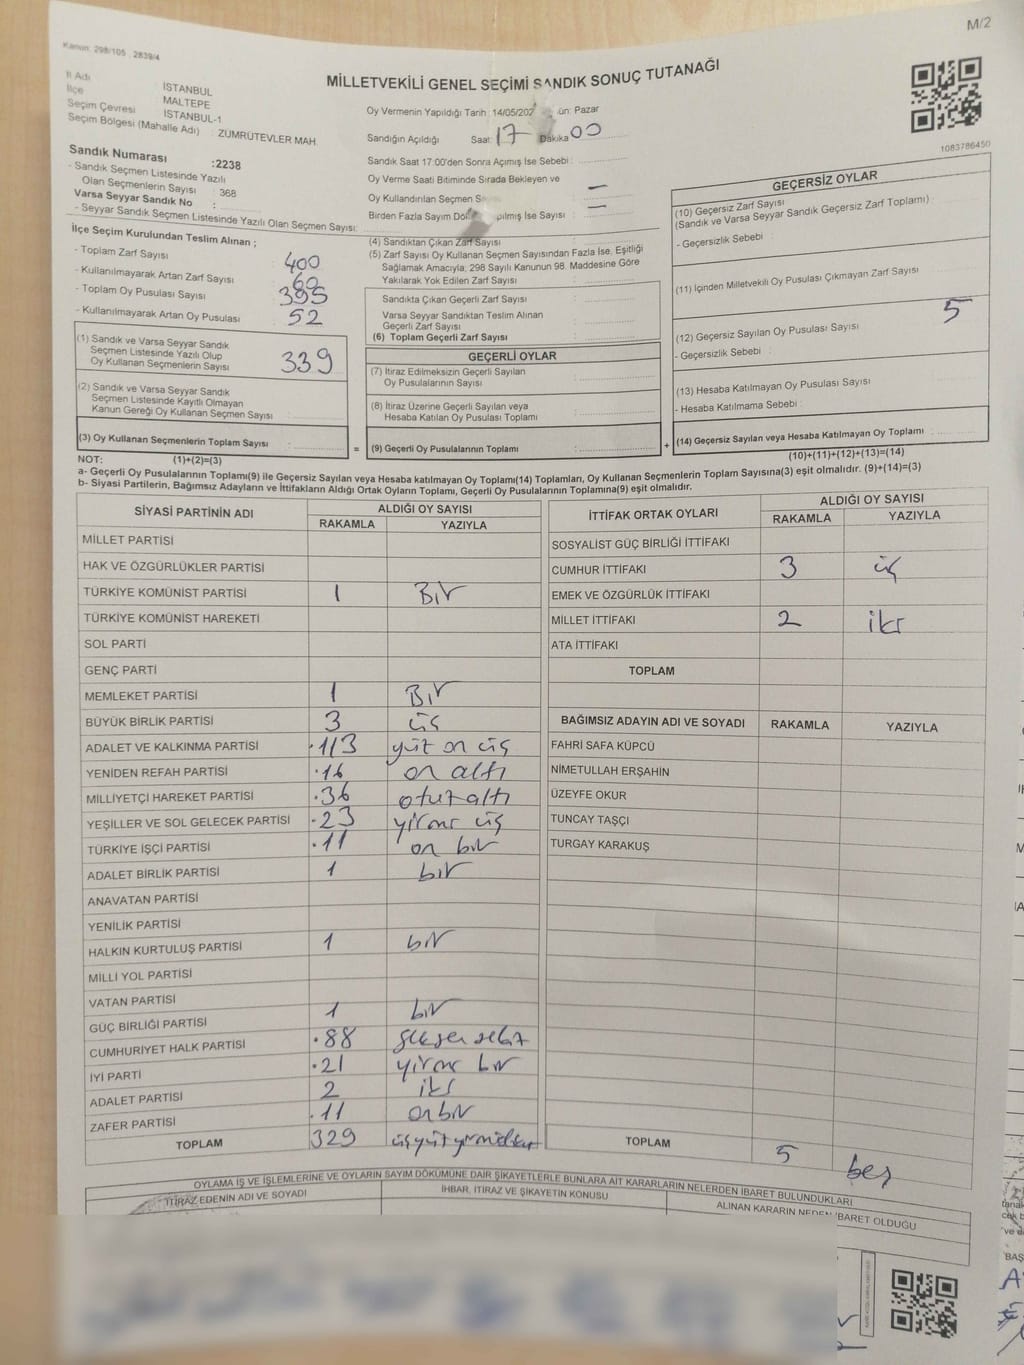 M/2
Kanun: 298/105, 2839/4
MİLLETVEKİLİ GENEL SEÇİMİ SANDIK SONUÇ TUTANAĞI
İl Adı : İSTANBUL
İlçe : MALTEPE
Seçim Çevresi : İSTANBUL-1
Seçim Bölgesi (Mahalle Adı) : ZÜMRÜTEVLER MAH.
Sandık Numarası :2238
- Sandık Seçmen Listesinde Yazılı
Olan Seçmenlerin Sayısı : 368
Varsa Seyyar Sandık No :
- Seyyar Sandık Seçmen Listesinde Yazılı Olan Seçmen Sayısı:
İlçe Seçim Kurulundan Teslim Alınan ;
- Toplam Zarf Sayısı 400
- Kullanılmayarak Artan Zarf Sayısı
- Toplam Oy Pusulası Sayısı
- Kullanılmayarak Artan Oy Pusulası 52
(1) Sandık ve Varsa Seyyar Sandık
Seçmen Listesinde Yazılı Olup
Oy Kullanan Seçmenlerin Sayısı 339
(2) Sandık ve Varsa Seyyar Sandık
Seçmen Listesinde Kayıtlı Olmayan
Kanun Gereği Oy Kullanan Seçmen Sayısı
(3) Oy Kullanan Seçmenlerin Toplam Sayısı :
Oy Vermenin Yapıldığı Tarih : 14/05/202 ün: Pazar
Sandığın Açıldığı Saat: 17 Dakika 00
Sandık Saat 17:00'den Sonra Açımış İse Sebebi :
Oy Verme Saati Bitiminde Sırada Bekleyen ve
Oy Kullandırılan Seçmen S –
Birden Fazla Sayım Dö pılmış İse Sayısı : –
(4) Sandıktan Çıkan Zarf Sayısı
(5) Zarf Sayısı Oy Kullanan Seçmen Sayısından Fazla İse, Eşitliği
Sağlamak Amacıyla; 298 Sayılı Kanunun 98. Maddesine Göre
Yakılarak Yok Edilen Zarf Sayısı :
Sandıkta Çıkan Geçerli Zarf Sayısı
Varsa Seyyar Sandıktan Teslim Alınan
Geçerli Zarf Sayısı
(6) Toplam Geçerli Zarf Sayısı :
GEÇERLİ OYLAR
(7) İtiraz Edilmeksizin Geçerli Sayılan
Oy Pusulalarının Sayısı :
(8) İtiraz Üzerine Geçerli Sayılan veya
Hesaba Katılan Oy Pusulası Toplamı
= (9) Geçerli Oy Pusulalarının Toplamı :
1083786450
GEÇERSİZ OYLAR
(10) Geçersiz Zarf Sayısı
(Sandık ve Varsa Seyyar Sandık Geçersiz Zarf Toplamı) :
- Geçersizlik Sebebi :
(11) İçinden Milletvekili Oy Pusulası Çıkmayan Zarf Sayısı
(12) Geçersiz Sayılan Oy Pusulası Sayısı 5
- Geçersizlik Sebebi :
(13) Hesaba Katılmayan Oy Pusulası Sayısı
- Hesaba Katılmama Sebebi :
+ (14) Geçersiz Sayılan veya Hesaba Katılmayan Oy Toplamı
NOT: (1)+(2)=(3) (10)+(11)+(12)+(13)=(14)
a- Geçerli Oy Pusulalarının Toplamı(9) ile Geçersiz Sayılan veya Hesaba katılmayan Oy Toplamı(14) Toplamları, Oy Kullanan Seçmenlerin Toplam Sayısına(3) eşit olmalıdır. (9)+(14)=(3)
b- Siyasi Partilerin, Bağımsız Adayların ve İttifakların Aldığı Ortak Oyların Toplamı, Geçerli Oy Pusulalarının Toplamına(9) eşit olmalıdır.
SİYASİ PARTİNİN ADI ALDIĞI OY SAYISI
RAKAMLA YAZIYLA
MİLLET PARTİSİ
HAK VE ÖZGÜRLÜKLER PARTİSİ
TÜRKİYE KOMÜNİST PARTİSİ 1 Bir
TÜRKİYE KOMÜNİST HAREKETİ
SOL PARTİ
GENÇ PARTİ
MEMLEKET PARTİSİ 1 Bir
BÜYÜK BİRLİK PARTİSİ 3 üç
ADALET VE KALKINMA PARTİSİ 113 yüz on üç
YENİDEN REFAH PARTİSİ 16 on altı
MİLLİYETÇİ HAREKET PARTİSİ 36 otuz altı
YEŞİLLER VE SOL GELECEK PARTİSİ 23 yirmi üç
TÜRKİYE İŞÇİ PARTİSİ 11 on bir
ADALET BİRLİK PARTİSİ 1 bir
ANAVATAN PARTİSİ
YENİLİK PARTİSİ
HALKIN KURTULUŞ PARTİSİ 1 bir
MİLLİ YOL PARTİSİ
VATAN PARTİSİ
GÜÇ BİRLİĞİ PARTİSİ 1 bir
CUMHURİYET HALK PARTİSİ 88 seksen sekiz
İYİ PARTİ 21 yirmi bir
ADALET PARTİSİ 2 iki
ZAFER PARTİSİ 11 onbir
TOPLAM 329 üçyüzyirmidokuz
İTTİFAK ORTAK OYLARI ALDIĞI OY SAYISI
RAKAMLA YAZIYLA
SOSYALİST GÜÇ BİRLİĞİ İTTİFAKI
CUMHUR İTTİFAKI 3 üç
EMEK VE ÖZGÜRLÜK İTTİFAKI
MİLLET İTTİFAKI 2 iki
ATA İTTİFAKI
TOPLAM
BAĞIMSIZ ADAYIN ADI VE SOYADI RAKAMLA YAZIYLA
FAHRİ SAFA KÜPCÜ
NİMETULLAH ERŞAHİN
ÜZEYFE OKUR
TUNCAY TAŞÇI
TURGAY KARAKUŞ
TOPLAM 5 beş
OYLAMA İŞ VE İŞLEMLERİNE VE OYLARIN SAYIM DÖKÜMÜNE DAİR ŞİKAYETLERLE BUNLARA AİT KARARLARIN NELERDEN İBARET BULUNDUKLARI
İTİRAZ EDENİN ADI VE SOYADI İHBAR, İTİRAZ VE ŞİKAYETİN KONUSU ALINAN KARARIN NEDEN İBARET OLDUĞU